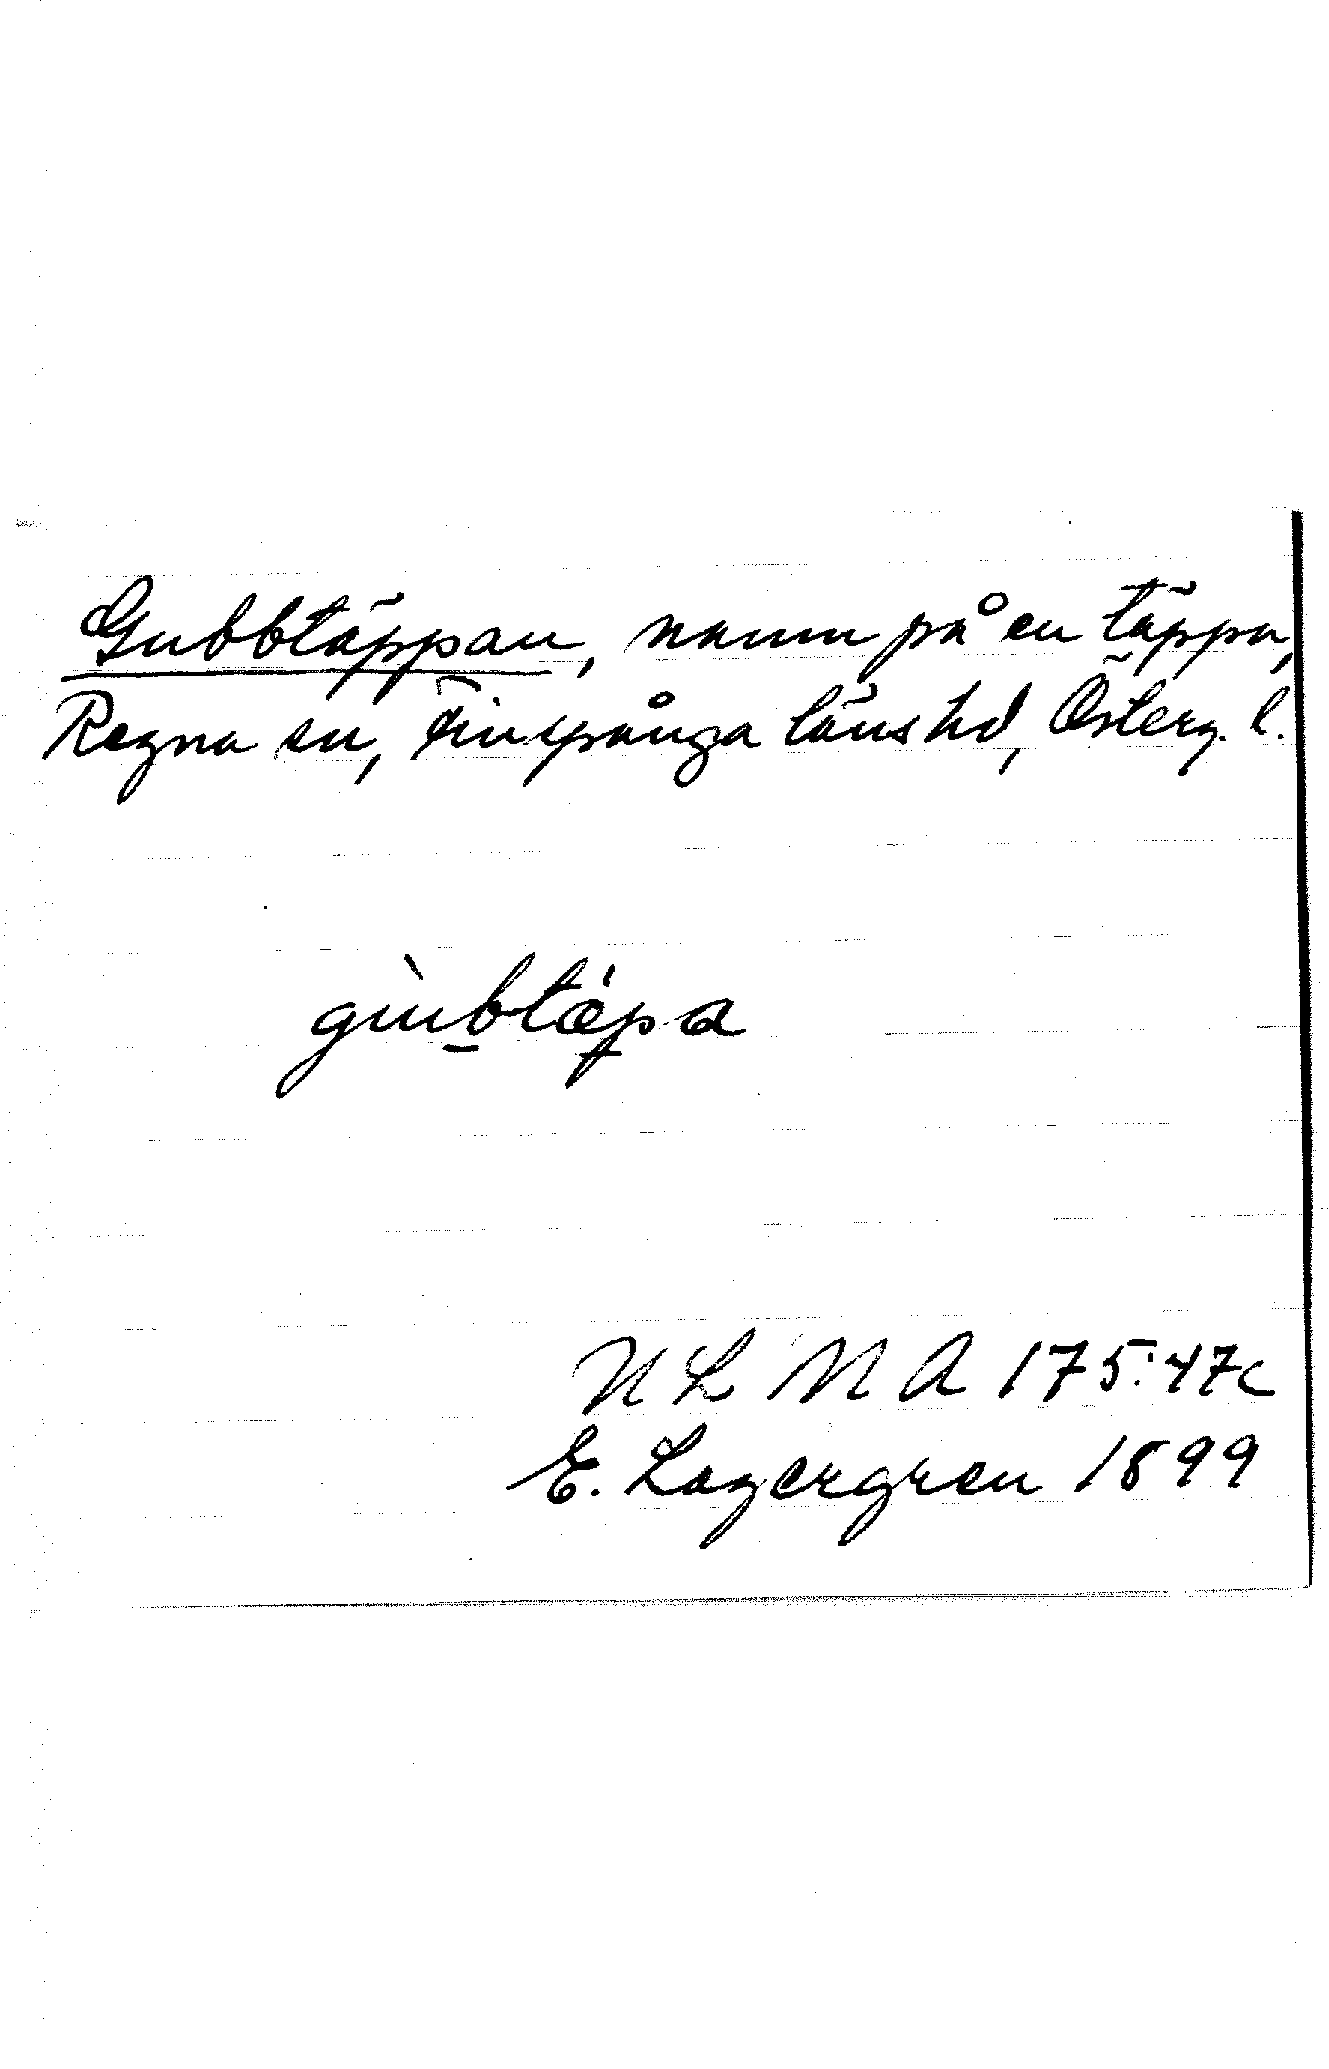 Gubbtäppan, namn på en täppa,
Regna sn, Finspånga läns hd, Österg. l.
gùbtǽpa
NLMA 175:47c
E. Lagergren 1899